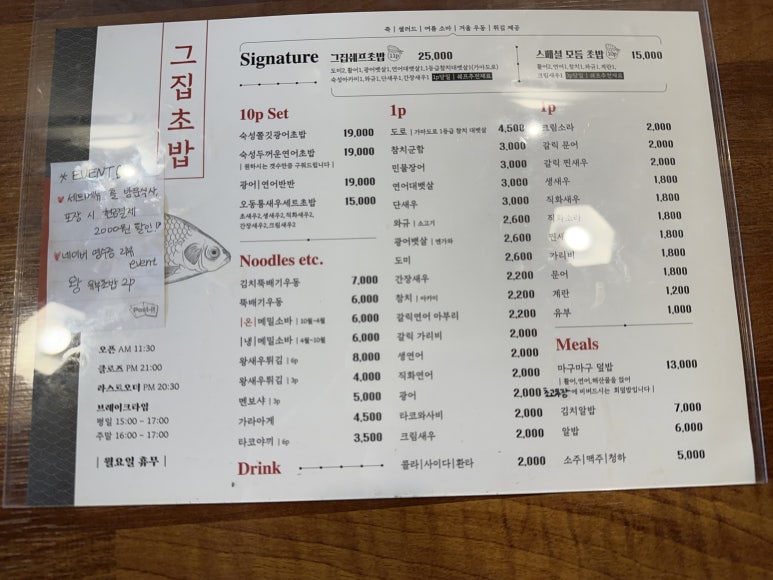 죽 | 샐러드 | 여름 소바 | 겨울 우동 | 튀김 제공
그집초밥
Signature
그집쉐프초밥 11p 25,000
도미2,활어1,광어뱃살1,연어대뱃살1,1등급참치대뱃살1(가마도로)
숙성아카미1,와규1,단새우1,간장새우1 1p당일 | 쉐프추천재료
스페셜 모듬 초밥 10p 15,000
활어2,연어1,참치1,와규1,계란1,
크림새우1 1p당일 | 쉐프추천재료
10p Set
숙성쫄깃광어초밥 19,000
숙성두꺼운연어초밥 19,000
| 원하시는 갯수만큼 구워드립니다 |
광어|연어반반 19,000
오동통새우세트초밥 15,000
초새우2,생새우2,직화새우2,
간장새우2,크림새우2
Noodles etc.
김치뚝배기우동 7,000
뚝배기우동 6,000
|온|메밀소바 | 10월~4월 6,000
|냉|메밀소바 | 4월~10월 6,000
왕새우튀김 | 6p 8,000
왕새우튀김 | 3p 4,000
멘보샤 | 3p 5,000
가라아게 4,500
타코야끼 | 6p 3,500
1p
도로 | 가마도로 1등급 참치 대뱃살 4,500
참치군함 3,000
민물장어 3,000
연어대뱃살 3,000
단새우 3,000
와규 | 소고기 2,600
광어뱃살 | 엔가와 2,600
도미 2,600
간장새우 2,200
참치 | 아카미 2,200
갈릭연어 아부리 2,200
갈릭 가리비 2,000
생연어 2,000
직화연어 2,000
광어 2,000
타코와사비 2,000
크림새우 2,000
1p
크림소라 2,000
갈릭 문어 2,000
갈릭 찐새우 2,000
생새우 1,800
직화새우 1,800
직화소라 1,800
찐새우 1,800
가리비 1,800
문어 1,800
계란 1,200
유부 1,000
Meals
마구마구 덮밥 13,000
| 활어,연어,해산물을 얹어
초고추장에 비벼드시는 회덮밥입니다 |
김치알밥 7,000
알밥 6,000
Drink
콜라|사이다|환타 2,000
소주|맥주|청하 5,000
EVENT!
세트메뉴 홀 방문식사,
포장 시 현금결제
2000원 할인!!
네이버 영수증 리뷰
event
왕 유부초밥 2p
Post-it
오픈 AM 11:30
클로즈 PM 21:00
라스트오더 PM 20:30
브레이크타임
평일 15:00 ~ 17:00
주말 16:00 ~ 17:00
| 월요일 휴무 |